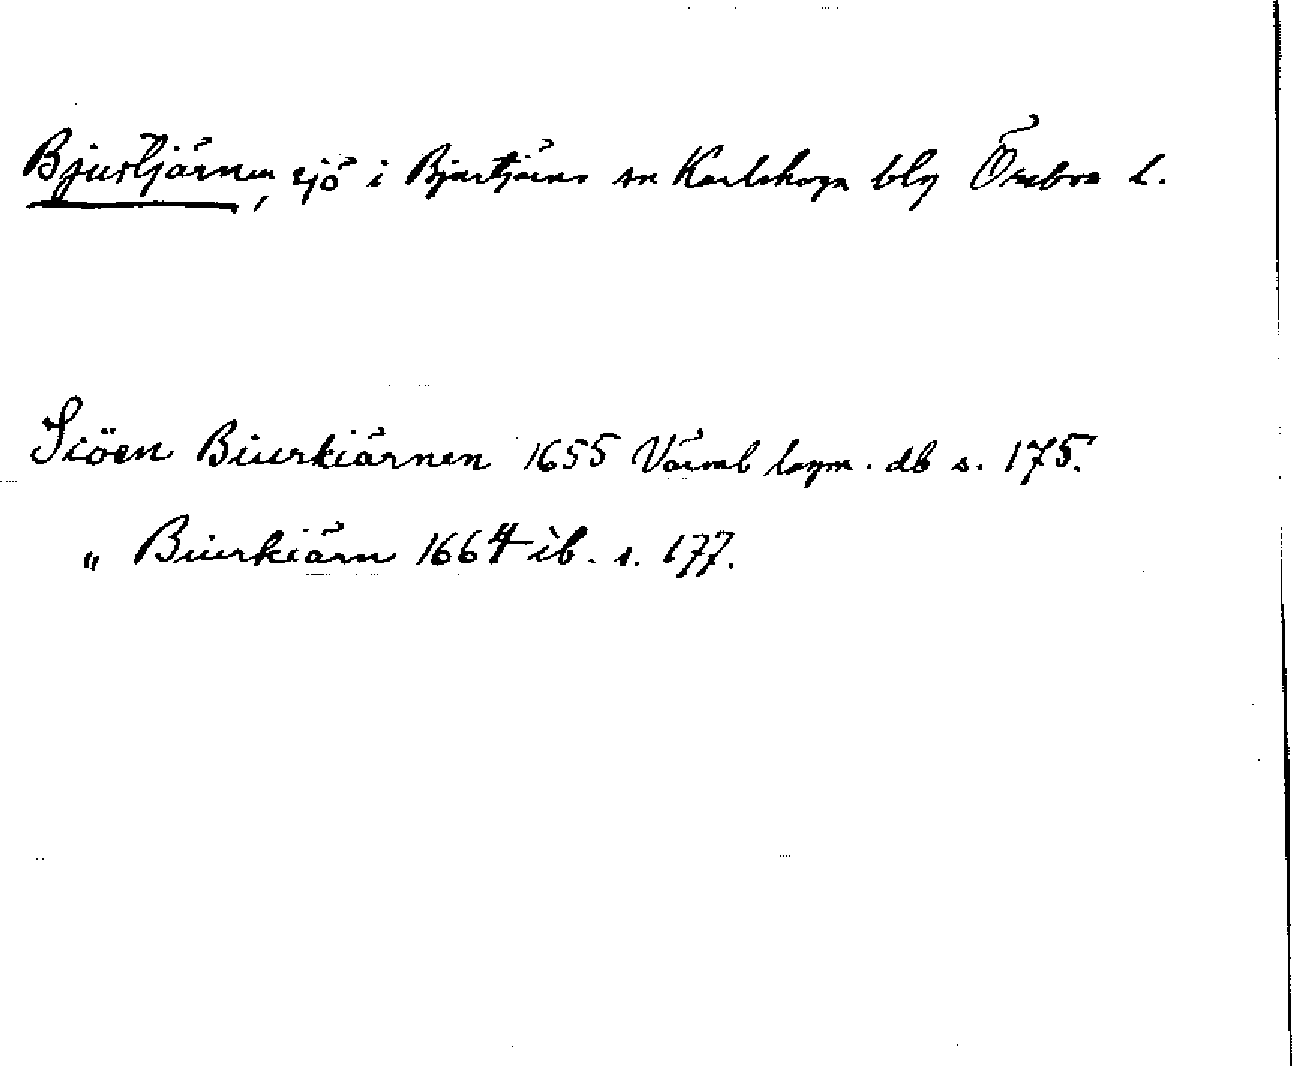 Bjurtjärnen, sjö i Bjurtjärns sn Karlskoga blg Örebro l.
Siöen Biurkiärnen 1655 Värml lagm. db s. 175.
" Biurkiärn 1664 ib. s. 177.